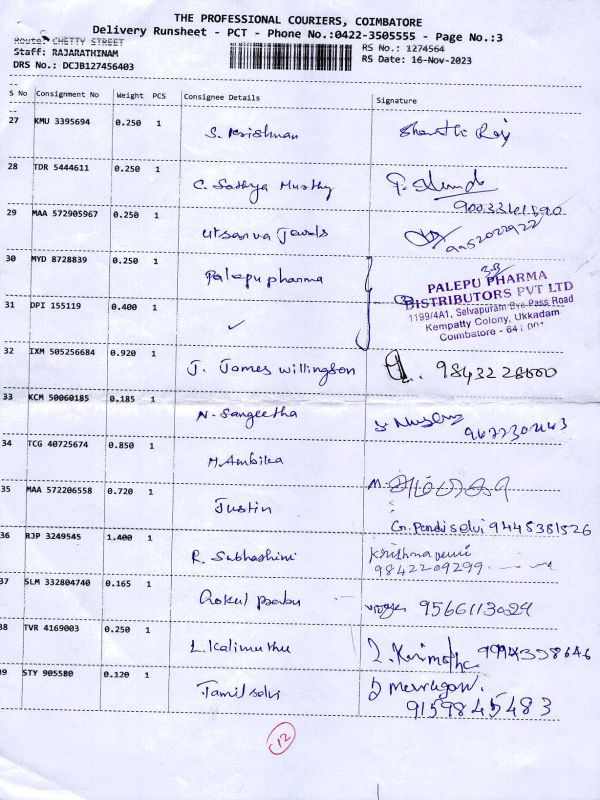 THE PROFESSIONAL COURIERS, COIMBATORE
Delivery Runsheet - PCT - Phone No.:0422-3505555 - Page No.:3
Route: CHETTY STREET
Staff: RAJARATHINAM
DRS No.: DCJB127456403
RS No.: 1274564
RS Date: 16-Nov-2023
S No Consignment No Weight PCS Consignee Details Signature
27 KMU 3395694 0.250 1 S. Krishnan
28 TDR 5444611 0.250 1 C. Sathya Murthy
29 MAA 572905967 0.250 1 Utsanva Jewels
30 MYD 8728839 0.250 1 Palepu pharma
PALEPU PHARMA
DISTRIBUTORS PVT LTD
1199/4A1, Selvapuram Bye Pass Road
Kempatty Colony, Ukkadam
Coimbatore - 641 001
31 DPI 155119 0.400 1 ✓
32 IXM 505256684 0.920 1 J. James Willingson
33 KCM 50060185 0.185 1 N. Sangeetha
34 TCG 40725674 0.850 1 M. Ambika
35 MAA 572206558 0.720 1 Justin G. Pandiselvi 9445381526
36 RJP 3249545 1.400 1 R. Subhashini Krishnaveni
9842209299
37 SLM 332804740 0.165 1 Gokul prabu 9566113029
38 TVR 4169003 0.250 1 L. Kalimuthu 9994358646
39 STY 905580 0.120 1 Tamil selvi
9159845483
12